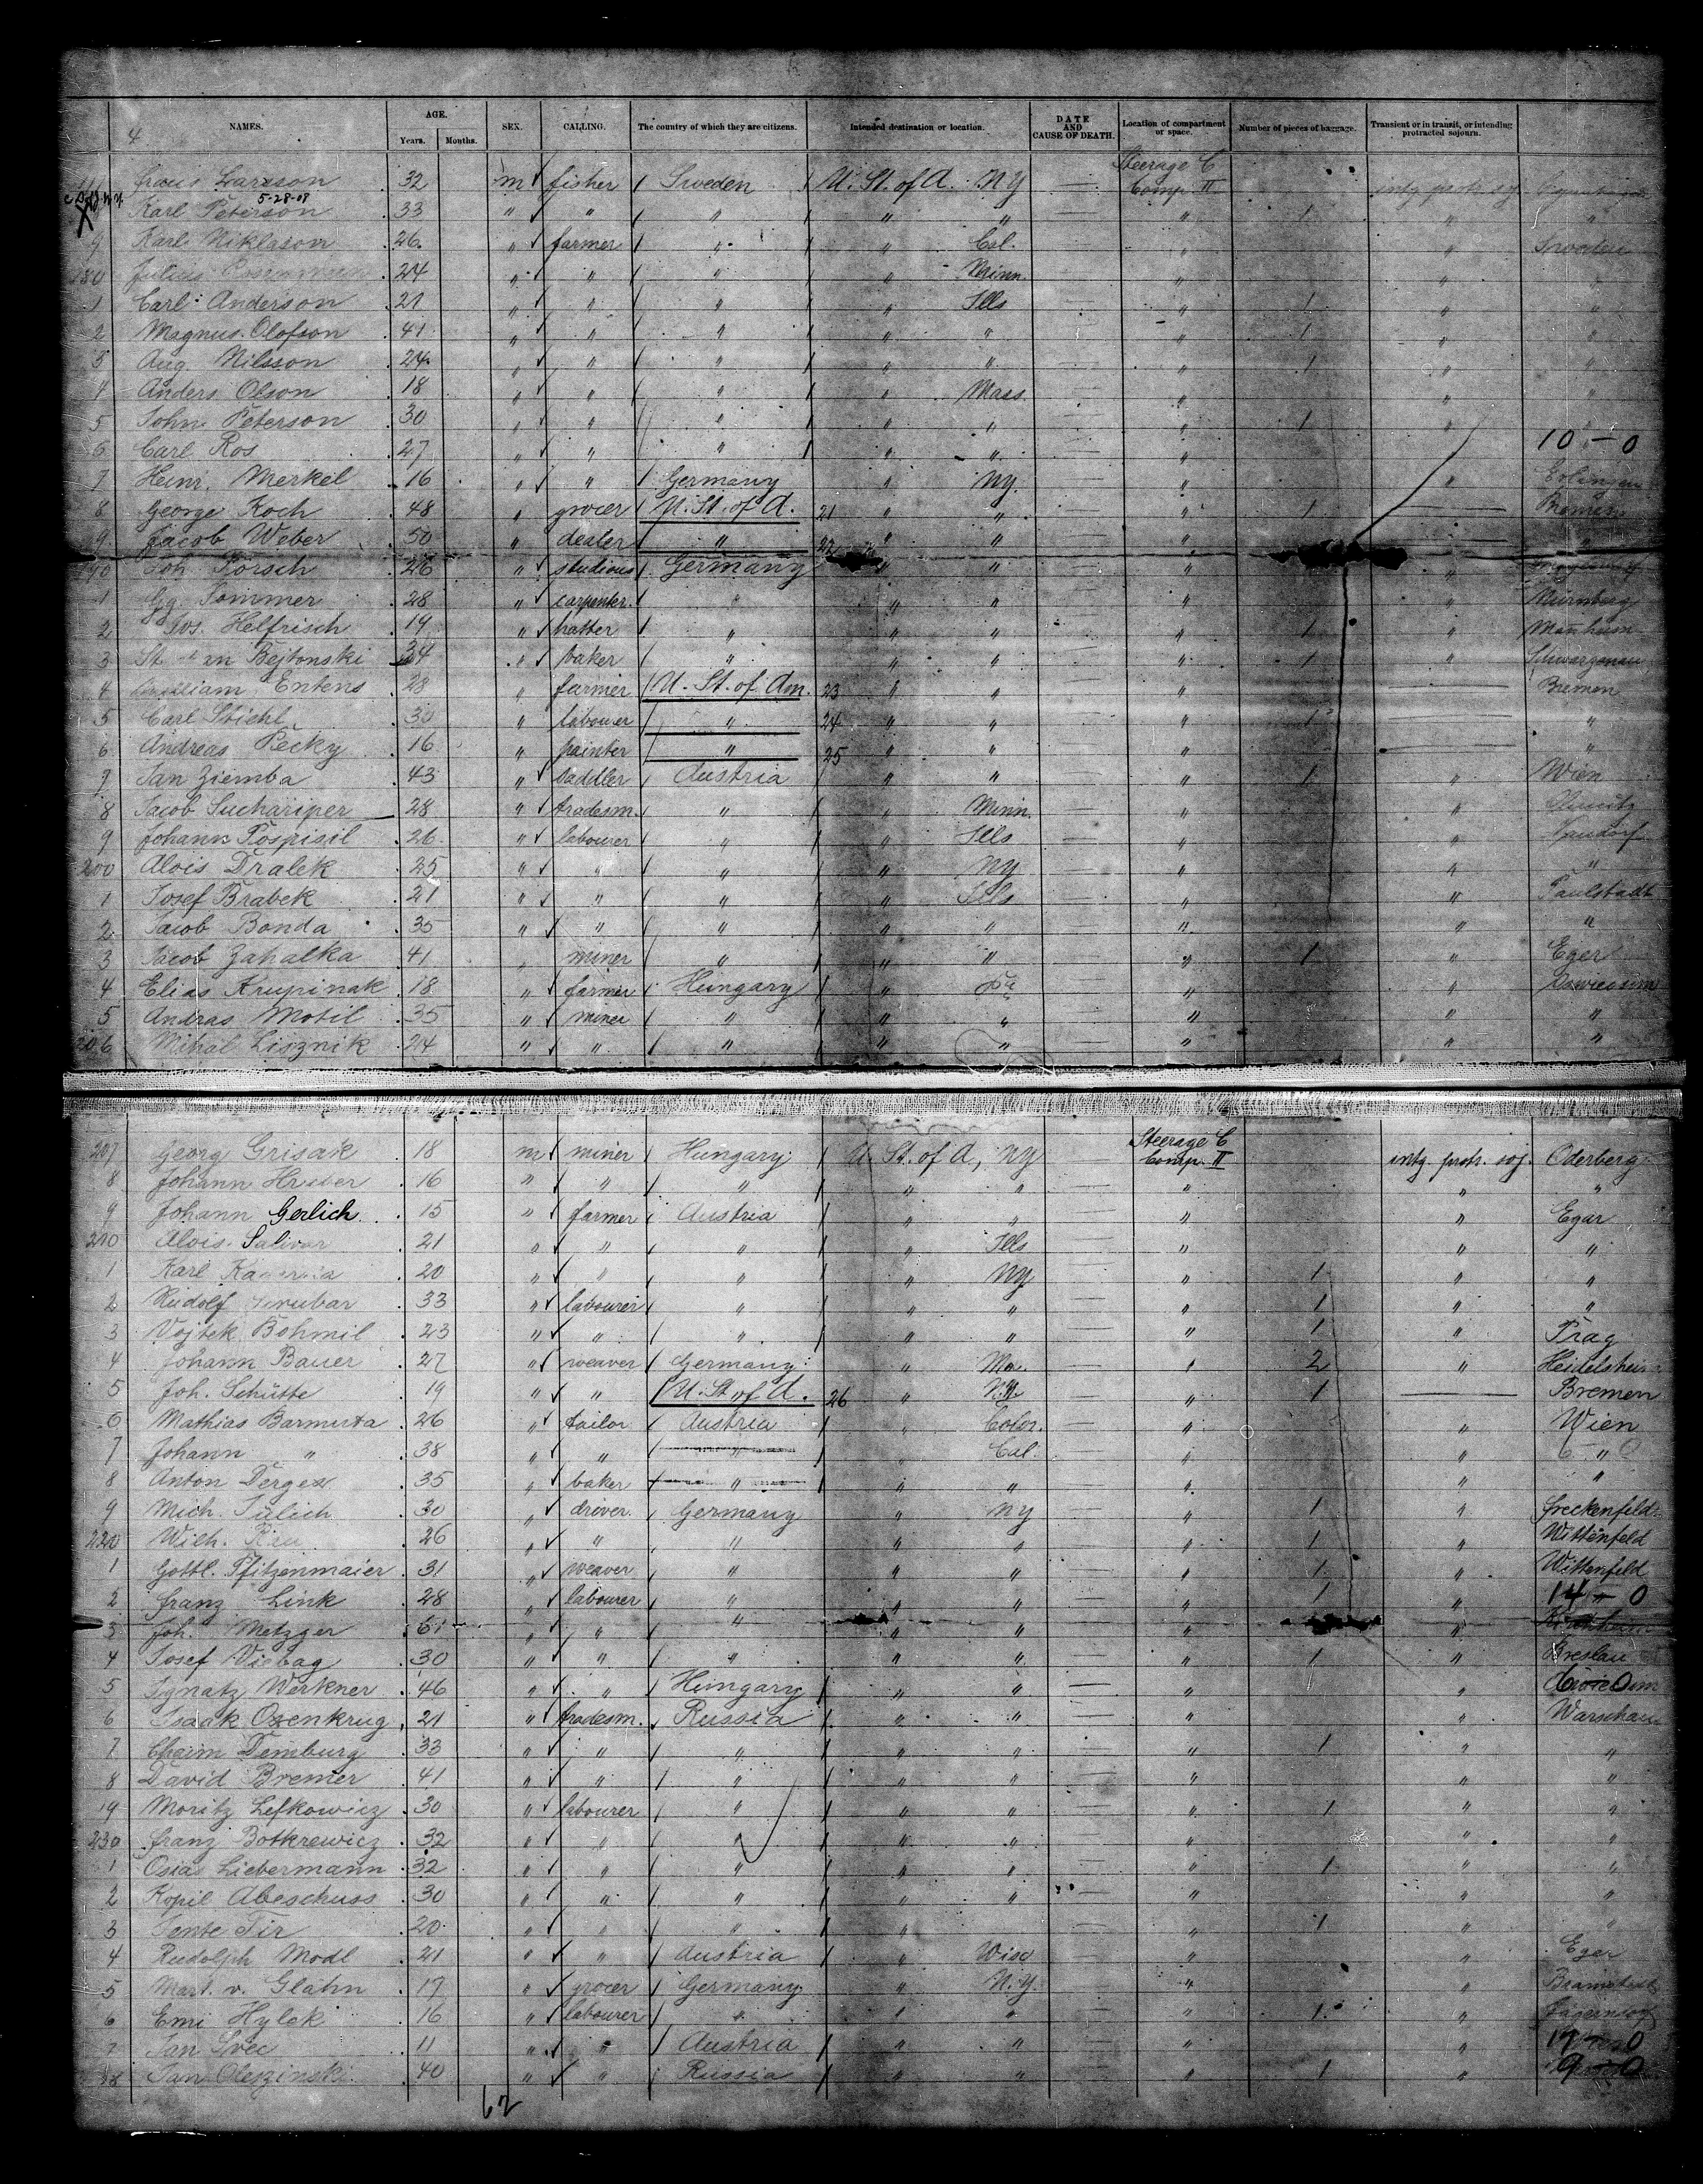 NAMES. AGE. Years. Months. SEX. CALLING. The country of which they are citizens. Intended destination or location. DATE AND CAUSE OF DEATH. Location of compartment or space. Number of pieces of baggage. Transient or in transit, or intending protracted sojourn.
4
Larsson 32 m fisher Sweden U. St. of A. NY Steerage C Comp. II intg protr soj
5-28-08
Karl Peterson 33 " " " " " " 1 " "
9 Karl Niklason 26 " farmer " " Cal. " " Sweden
180 Julius 24 " " " " Minn. " " "
1 Carl Anderson 21 " " " " Ills " 1 " "
2 Magnus Olofson 41 " " " " " " 1 " "
3 Aug. Nilsson 24 " " " " " " 1 " "
4 Anders Olson 18 " " " " Mass. " " "
5 John Peterson 30 " " " " " " 1 " "
6 Carl Ros 27 " " " " " " 10 - 0
7 Heinr. Merkel 16 " " Germany " NY. " "
8 George Koch 48 " grocer U. St. of A. 21 " " " 1 Bremen
9 Jacob Weber 50 " dealer " 22 " " " "
190 Joh. Körsch 26 " studious Germany " " " "
1 Gg. Sommer 28 " carpenter " " " " " Nürnberg
2 Jos. Helfrisch 19 " hatter " " " " 1 " Manheim
3 Bejtonski 34 " baker " " " " 1 " Schwarzenau
4 William Entens 28 " farmer U. St. of Am. 23 " " " Bremen
5 Carl Stiehl 30 " labourer " 24 " " " 1 "
6 Andreas Pecky 16 " painter " 25 " " " "
7 Jan Ziemba 43 " saddler Austria " " " 1 " Wien
8 Jacob Suchariper 28 " tradesm. " " Minn. " "
9 Johann Pospisil 26 " labourer " " Ills " "
200 Alois Dralek 25 " " " " NY " " "
1 Josef Brabek 21 " " " " Ills " " Paulstadt
2 Jacob Bonda 35 " " " " " " " "
3 Jacob Zahalka 41 " miner " " " " 1 " Eger
4 Elias Krupinak 18 " farmer Hungary " Pa " "
5 Andras Motil 35 " miner " " " " " "
206 Mihal Lisznik 24 " " " " " " " "
207 Georg Grisak 18 m miner Hungary U. St. of A, NY Steerage C Comp. II intg. protr. soj. Oderberg
8 Johann 16 " " " " " " " "
9 Johann Gerlich 15 " farmer Austria " " " " Egar
210 Alois Salivar 21 " " " " Ills " " "
1 Karl 20 " " " " NY " 1 " "
2 Rudolf 33 " labourer " " " " 1 " "
3 Vojtek Bohmil 23 " " " " " " 1 " Prag
4 Johann Bauer 27 " weaver Germany " Ma. " 2 " Heidelsheim
5 Joh. Schütte 19 " " U. St. of A. 26 " N.Y. " 1 Bremen
6 Mathias Barmuta 26 " tailor Austria " Color. " " Wien
7 Johann " 38 " " " " Cal. " " "
8 Anton Derges 35 " baker " " " " " "
9 Mich. Jülich 30 " driver. Germany " NY " 1 " Greckenfeld
220 Wilh. 26 " " " " " " 1 " Wittenfeld
1 Gottl. Pfitzenmaier 31 " weaver " " " " 1 " Wittenfeld
2 Franz Link 28 " labourer " " " " 1 " 14 - 0
3 Joh. Metzger " " " " " " "
4 Josef Viebag 30 " " " " " " 1 " Breslau
5 Ignatz Werkner 46 " " Hungary " " " "
6 Isaak Ozenkrug 21 " tradesm. Russia " " " " Warschau
7 Chaim Demburg 33 " " " " " " 1 " "
8 David Bremer 41 " " " " " " " "
19 Moritz Lefkowicz 30 " labourer " " " " 1 " "
230 Franz Botkrewicz 32 " " " " " " " "
1 Osias Liebermann 32 " " " " " " 1 " "
2 Kopil Abeschuss 30 " " " " " " " "
3 Tir 20 " " " " " 1 " "
4 Rudolph Modl 21 " " Austria " Wisc " " Eger
5 Mart. v. Glahn 17 " grocer Germany " N.Y. " "
6 Emi Hylek 16 " labourer " " " " 1 " Jägerndorf
7 Jan Svec 11 " " Austria " " " 17 - 0
38 Jan Olejzinski 40 " " Russia " " " 1 " 9 - 0
62